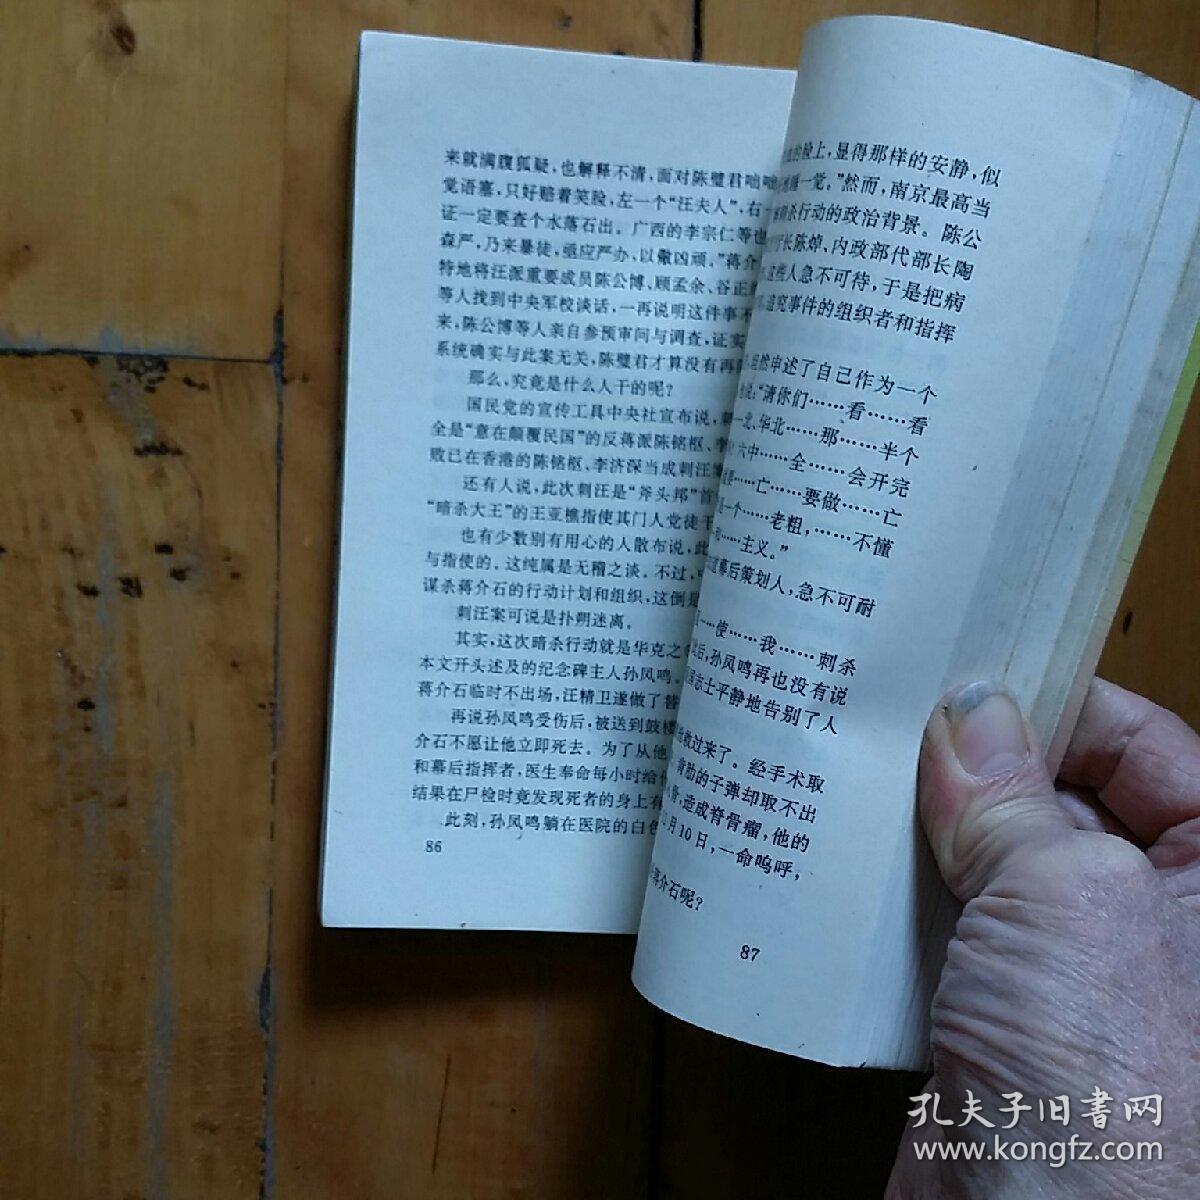 来就满腹狐疑，也解释不清，面对陈璧君咄咄
觉语塞，只好赔着笑脸，左一个“汪夫人”，右一
证一定要查个水落石出。广西的李宗仁等也
森严，乃来暴徒，亟应严办，以儆凶顽。”蒋介
特地将汪派重要成员陈公博、顾孟余、谷正
等人找到中央军校谈话，一再说明这件事不
来，陈公博等人亲自参预审问与调查，证实
系统确实与此案无关，陈璧君才算没有再
那么，究竟是什么人干的呢？
国民党的宣传工具中央社宣布说，
全是“意在颠覆民国”的反蒋派陈铭枢、
败已在香港的陈铭枢、李济深当成刺汪
还有人说，此次刺汪是“斧头邦”首
“暗杀大王”的王亚樵指使其门人党徒干
也有少数别有用心的人散布说，此
与指使的。这纯属是无稽之谈。不过，
谋杀蒋介石的行动计划和组织，这倒是
刺汪案可说是扑朔迷离。
其实，这次暗杀行动就是华克之
本文开头述及的纪念碑主人孙凤鸣。
蒋介石临时不出场，汪精卫遂做了替
再说孙凤鸣受伤后，被送到鼓楼
介石不愿让他立即死去。为了从他
和幕后指挥者，医生奉命每小时给他
结果在尸检时竟发现死者的身上有
此刻，孙凤鸣躺在医院的白色
86
的脸上，显得那样的安静，似
一觉。”然而，南京最高当
刺杀行动的政治背景。陈公
长陈焯，内政部代部长陶
这些人急不可待，于是把病
追究事件的组织者和指挥
坦然申述了自己作为一个
说：“请你们……看……看
北、华北……那……半个
六中……全……会开完
要……亡……要做……亡
是一个……老粗，……不懂
……主义。”
幕后策划人，急不可耐
……使……我……刺杀
后，孙凤鸣再也没有说
志士平静地告别了人
救过来了。经手术取
背肋的子弹却取不出
，造成脊骨瘤，他的
月10日，一命呜呼，
蒋介石呢？
87
孔夫子旧书网
www.kongfz.com